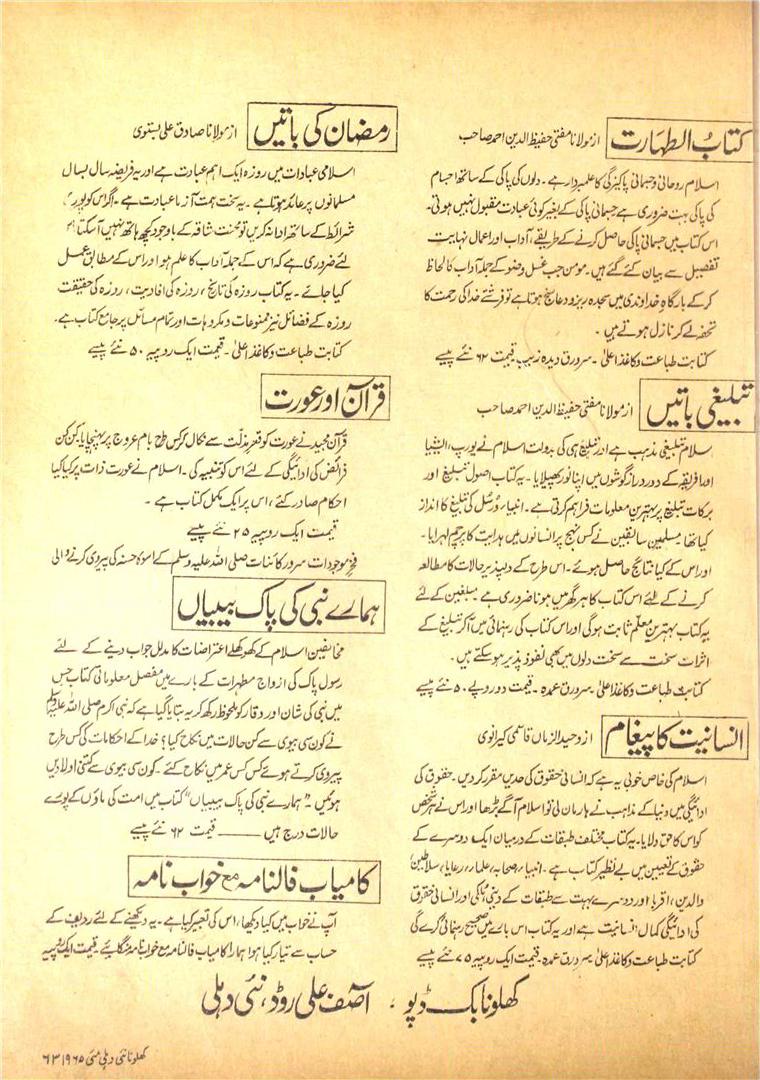 کتابُ الطہارت
از مولانا مفتی حفیظ الدین احمد صاحب
اسلام روحانی و جسمانی پاکیزگی کا علمبردار ہے۔ دلوں کی پاکی کے ساتھ اجسام
کی پاکی بہت ضروری ہے جسمانی پاکی کے بغیر کوئی عبادت مقبول نہیں ہوتی۔
اس کتاب میں جسمانی پاکی حاصل کرنے کے طریقے، آداب اور اعمال نہایت
تفصیل سے بیان کئے گئے ہیں۔ مومن جب غسل وضو کے جملہ آداب کا لحاظ
کر کے بارگاہِ خداوندی میں سجدہ ریز و دعا سنج ہوتا ہے تو فرشتے خدا کی رحمت کا
تحفہ لے کر نازل ہوتے ہیں۔
کتابت طباعت و کاغذ اعلیٰ۔ سرورق دیدہ زیب۔ قیمت ۶۲ نئے پیسے
تبلیغی باتیں
از مولانا مفتی حفیظ الدین احمد صاحب
اسلام تبلیغی مذہب ہے اور تبلیغ ہی کی بدولت اسلام نے یورپ، ایشیا
اور افریقہ کے دور دراز گوشوں میں اپنا نور پھیلایا۔ یہ کتاب اصول تبلیغ اور
برکات تبلیغ پر بہترین معلومات فراہم کرتی ہے۔ انبیاء و رُسُل کی تبلیغ کا انداز
کیا تھا، مسلمین سابقین نے کس نہج پر انسانوں میں ہدایت کا پرچم لہرایا۔
اور اس کے کیا نتائج حاصل ہوئے۔ اس طرح کے دلپذیر حالات کا مطالعہ
کرنے کے لئے اس کتاب کا ہر گھر میں ہونا ضروری ہے مبلغین کے لئے
یہ کتاب بہترین معلم ثابت ہوگی اور اس کتاب کی رہنمائی میں آکر تبلیغ کے
اثرات سخت سے سخت دلوں میں بھی نفوذ پذیر ہو سکتے ہیں۔
کتابت طباعت و کاغذ اعلیٰ۔ سرورق عمدہ۔ قیمت دو روپے ۵۰ نئے پیسے
انسانیت کا پیغام
از وحید الزماں قاسمی کیرانوی
اسلام کی خاص خوبی یہ ہے کہ انسانی حقوق کی حدیں مقرر کردیں۔ حقوق کی
ادائیگی میں دنیا کے مذاہب نے ہار مان لی تو اسلام آگے بڑھا اور اس نے ہر شخص
کو اس کا حق دلایا۔ یہ کتاب مختلف طبقات کے درمیان ایک دوسرے کے
حقوق کے تعیین میں بے نظیر کتاب ہے۔ انبیاء، صحابہ، علماء، رعایا، سلاطین
والدین، اقربا اور دوسرے بہت سے طبقات کے دینی، ملکی اور انسانی حقوق
کی ادائیگی کمال انسانیت ہے اور یہ کتاب اس بارے میں صحیح رہنمائی کرے گی
کتابت طباعت و کاغذ اعلیٰ۔ سرورق عمدہ۔ قیمت ایک روپیہ ۷۵ نئے پیسے
رمضان کی باتیں
از مولانا صادق علی بستوی
اسلامی عبادات میں روزہ ایک اہم عبادت ہے اور یہ فریضہ سال بسال
مسلمانوں پر عائد ہوتا ہے۔ یہ سخت ہمت آزما عبادت ہے۔ اگر اس کو پورے
شرائط کے ساتھ ادا نہ کریں تو محنت شاقہ کے باوجود کچھ ہاتھ نہیں آسکتا
لئے ضروری ہے کہ اس کے جملہ آداب کا علم ہو اور اس کے مطابق عمل
کیا جائے۔ یہ کتاب روزہ کی تاریخ، روزہ کی افادیت، روزہ کی حقیقت
روزہ کے فضائل نیز ممنوعات و مکروہات اور تمام مسائل پر جامع کتاب ہے۔
کتابت طباعت و کاغذ اعلیٰ۔ قیمت ایک روپیہ ۵۰ نئے پیسے
قرآن اور عورت
قرآن مجید نے عورت کو قعرِ مذلّت سے نکال کر کس طرح بام عروج پر پہنچایا۔ کن کن
فرائض کی ادائیگی کے لئے اس کو تنبیہ کی۔ اسلام نے عورت ذات پر کیا کیا
احکام صادر کئے، اس پر ایک مکمل کتاب ہے۔
قیمت ایک روپیہ ۲۵ نئے پیسے
فخرِ موجودات سرور کائنات صلی اللہ علیہ وسلم کے اسوۂ حسنہ کی پیروی کرنے والی
ہمارے نبی کی پاک بیبیاں
مخالفین اسلام کے کھوکھلے اعتراضات کا مدلل جواب دینے کے لئے
رسول پاک کی ازواج مطہرات کے بارے میں مفصل معلوماتی کتاب جس
میں نبی کی شان اور وقار کو ملحوظ رکھ کر یہ بتایا گیا ہے کہ نبی اکرم صلی اللہ علیہ وسلم
نے کون سی بیوی سے کن حالات میں نکاح کیا؟ خدا کے احکامات کی کس طرح
پیروی کرتے ہوئے کس کس عمر میں نکاح کئے۔ کون سی بیوی سے کتنی اولادیں
ہوئیں۔ "ہمارے نبی کی پاک بیبیاں" کتاب میں امت کی ماؤں کے پورے
حالات درج ہیں ——— قیمت ۶۲ نئے پیسے
کامیاب فالنامہ مع خواب نامہ
آپ نے خواب میں کیا دیکھا، اس کی تعبیر کیا ہے۔ یہ دیکھنے کے لئے ردیف کے
حساب سے تیار کیا ہوا ہمارا کامیاب فالنامہ مع خواب نامہ منگائیے قیمت ایک روپیہ
کھلونا بک ڈپو، آصف علی روڈ، نئی دہلی
کھلونا نئی دہلی مئی ۱۹۶۵ ۶۳